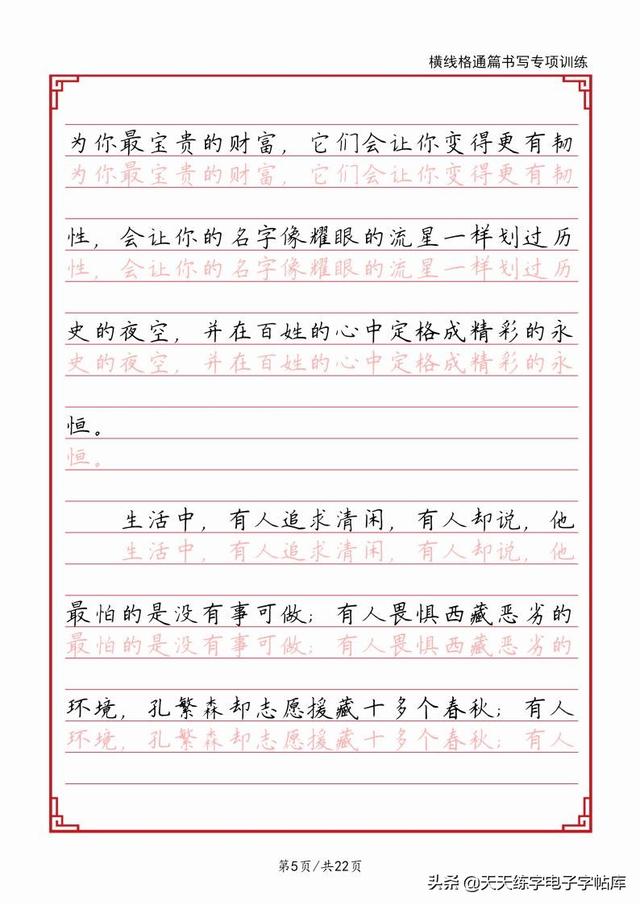 横线格通篇书写专项训练
为你最宝贵的财富，它们会让你变得更有韧
为你最宝贵的财富，它们会让你变得更有韧
性，会让你的名字像耀眼的流星一样划过历
性，会让你的名字像耀眼的流星一样划过历
史的夜空，并在百姓的心中定格成精彩的永
史的夜空，并在百姓的心中定格成精彩的永
恒。
恒。
生活中，有人追求清闲，有人却说，他
生活中，有人追求清闲，有人却说，他
最怕的是没有事可做；有人畏惧西藏恶劣的
最怕的是没有事可做；有人畏惧西藏恶劣的
环境，孔繁森却志愿援藏十多个春秋；有人
环境，孔繁森却志愿援藏十多个春秋；有人
第5页/共22页
头条 @天天练字电子字帖库